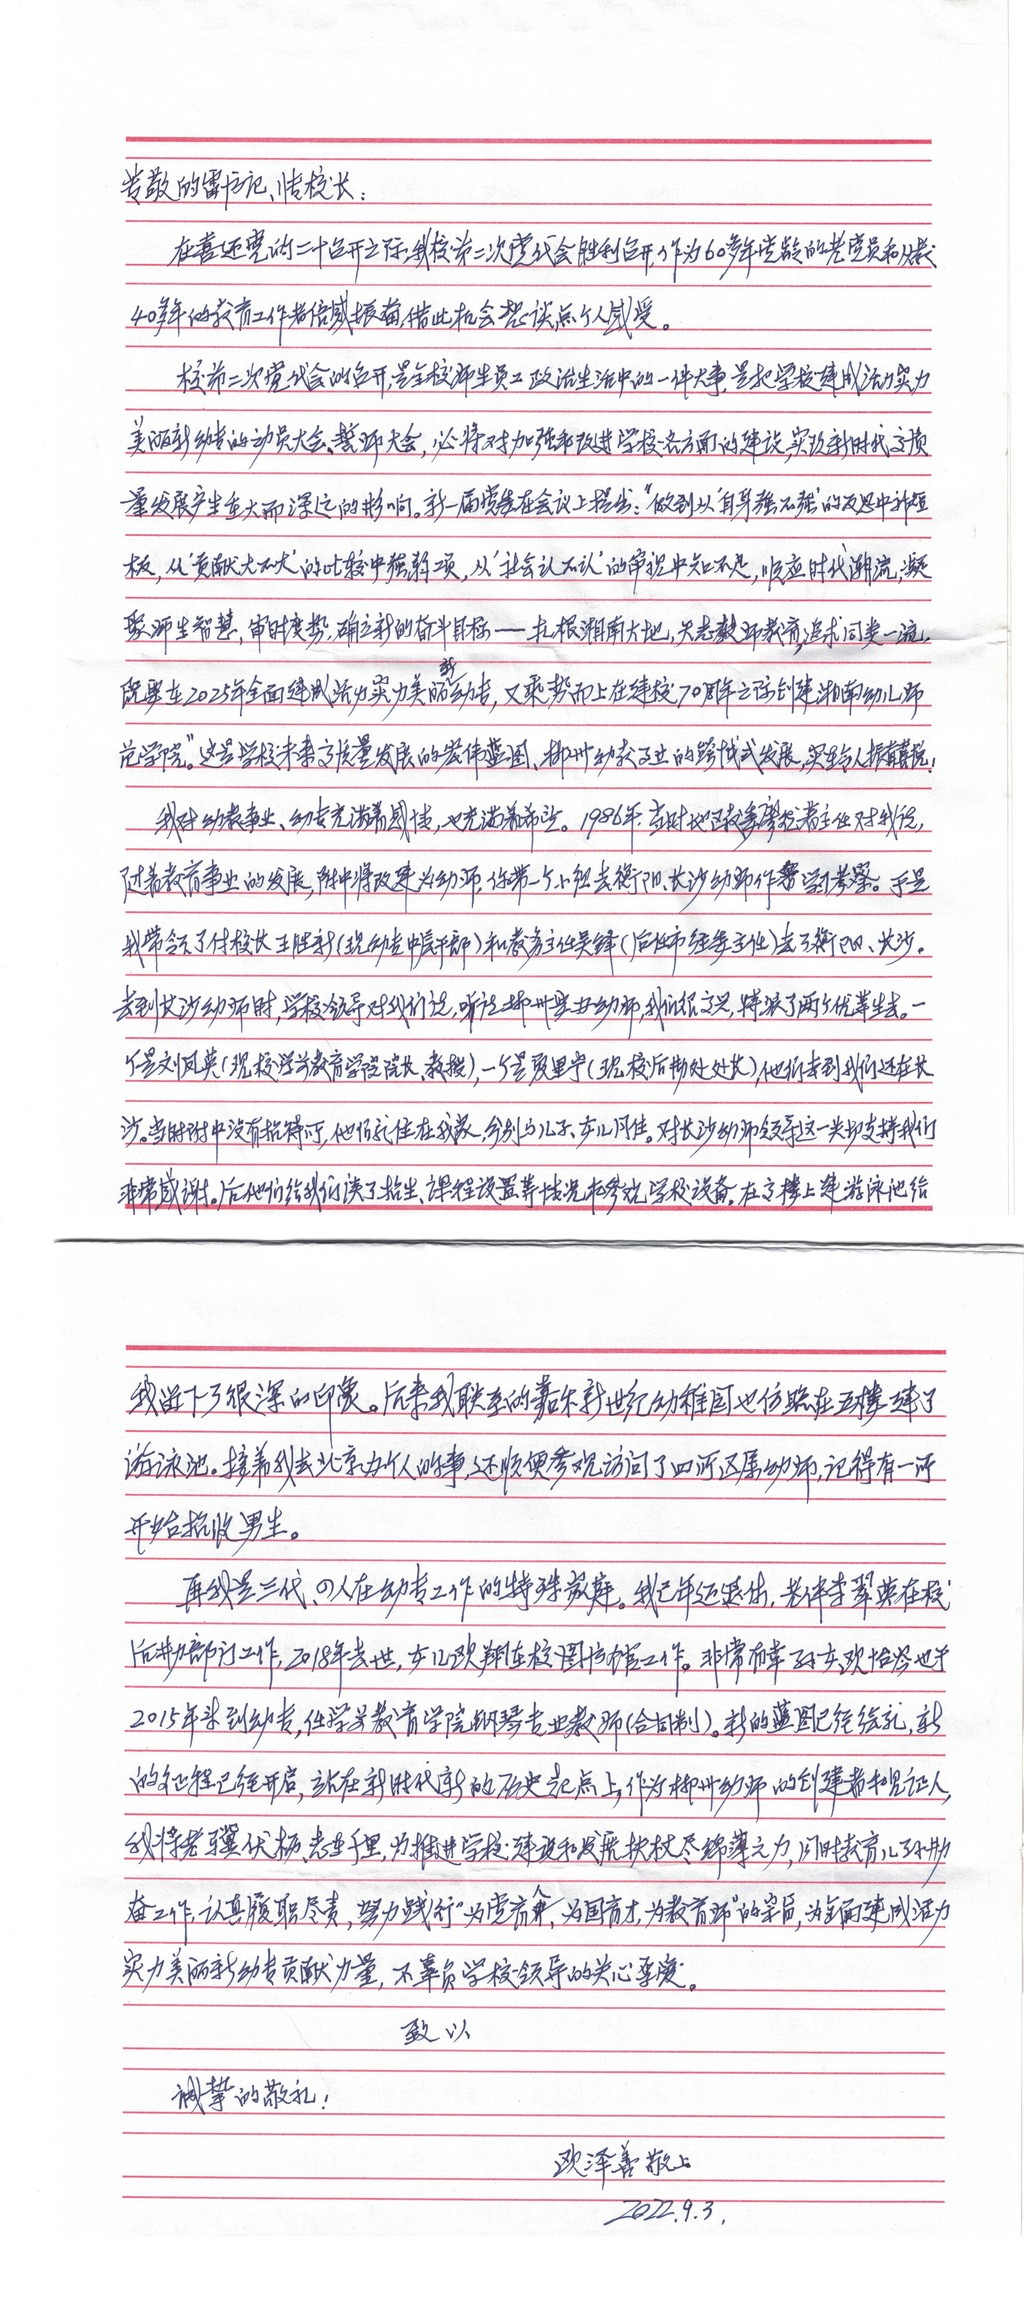 尊敬的雷书记、唐校长：
在喜迎党的二十召开之际，我校第二次党代会胜利召开，作为60多年党龄的老党员和从教
40多年的教育工作者倍感振奋，借此机会想谈点个人感受。
校第二次党代会的召开，是全校师生员工政治生活中的一件大事，是把学校建成活力实力
美丽新幼专的动员大会、誓师大会，必将对加强和改进学校各方面的建设，实改新时代高质
量发展产生重大而深远的影响。新一届党委在会议上提出：“做到从‘自身强不强’的反思中补短
板，从‘贡献大不大’的比较中强弱项，从‘社会认不认’的审视中知不足，顺应时代潮流，凝
聚师生智慧，审时度势，确立新的奋斗目标——扎根湘南大地，矢志教师教育，追求同类一流，
既要在2025年全面建成活力实力美丽新幼专，又乘势而上在建校70周年之际创建湘南幼儿师
范学院”。这是学校未来高质量发展的宏伟蓝图、郴州幼教事业的跨越式发展，实在令人振奋喜悦！
我对幼教事业、幼专充满着感情，也充满着希望。1986年，当时地区教委主任对我说，
随着教育事业的发展，附中将改建为幼师，你带一个小组去衡阳、长沙幼师作学习考察。于是
我带领了付校长王胜新（现幼专中层干部）和教务主任吴锋（后任市经委主任）去了衡阳、长沙。
去到长沙幼师时，学校领导对我们说，听说郴州要办幼师，我们很高兴，特派了两个优等生去。一
个是刘凤英（现校学前教育学院院长、教授），一个是夏里宇（现校后勤处处长），他们去到我们还在长
沙。当时附中没有招待所，他们就住在我家，分别与儿子、女儿同住。对长沙幼师领导这一关切支持我们
非常感谢。后他们给我们谈了招生、课程设置等情况和参观学校设备。在高楼上建游泳池给
我留下了很深的印象。后来我联系的嘉禾新世纪幼稚园也仿照在五楼建了
游泳池。接着我去北京办个人的事，还顺便参观访问了四所区属幼师，记得有一所
开始招收男生。
再我是三代、四人在幼专工作的特殊家庭。我已年迈退休，老伴李翠英在校
后勤部门工作，2018年去世，女儿欧翔在校图书馆工作。非常有幸孙女欧怡岑也于
2015年来到幼专，任学前教育学院钢琴专业教师（合同制）。新的蓝图已经绘就，新
的征程已经开启，站在新时代新的历史起点上，作为郴州幼师的创建者和见证人，
我将老骥伏枥、志在千里，为推进学校建设和发展扶杖尽绵薄之力，同时教育儿孙勤
奋工作，认真履职尽责，努力践行“为党育人，为国育才，为教育师”的宗旨，为全面建成活力
实力美丽新幼专贡献力量，不辜负学校领导的关心厚爱。
致以
诚挚的敬礼！
欧泽善敬上
2022.9.3.